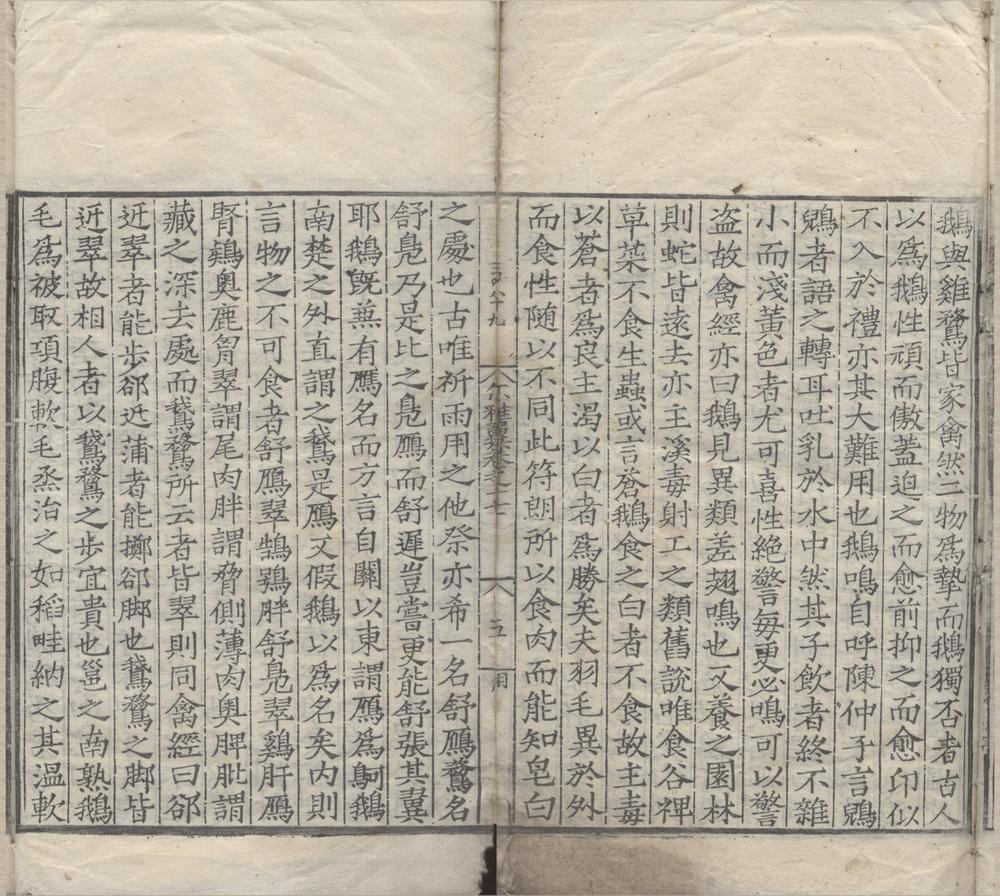 鵝與雞鶩皆家禽然二物爲摯而鵝獨否者古人
以爲鵝性頑而傲蓋迫之而愈前抑之而愈卬似
不入於禮亦其大難用也鵝鳴自呼陳仲子言鶂
鶂者語之轉耳吐乳於水中然其子飲者終不雜
小而淺黃色者尤可喜性絕警每更必鳴可以警
盜故禽經亦曰鵝見異類差翅鳴也又養之園林
則蛇皆遠去亦主溪毒射工之類舊說唯食谷稗
草菜不食生蟲或言蒼鵝食之白者不食故主毒
以蒼者爲良主渴以白者爲勝矣夫羽毛異於外
而食性随以不同此符朗所以食肉而能知皂白
尒雅翼卷之十七
五
之處也古唯祈雨用之他祭亦希一名舒鴈鶩名
舒鳧乃是比之鳧鴈而舒遲豈嘗更能舒張其翼
耶鵝旣蕪有鴈名而方言自關以東謂鴈爲鴚鵝
南楚之外直謂之鵞是鴈又假鵝以爲名矣内則
言物之不可食者舒鴈翠鵠鴞胖舒鳧翠鷄肝鴈
腎鷄奥鹿胃翠謂尾肉胖謂脅側薄肉奥脾肶謂
藏之深去處而鵞鶩所云者皆翠則同禽經曰郤
近翠者能步郤近蒲者能擲郤脚也鵞鶩之脚皆
近翠故相人者以鵞鶩之步宜貴也邕之南熟鵝
毛爲被取項腹軟毛烝治之如稻畦納之其溫軟